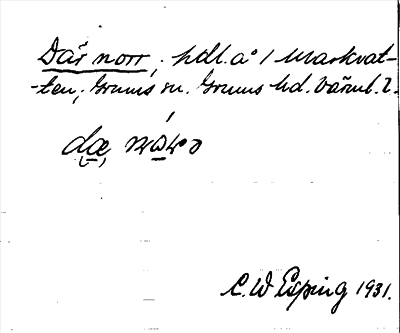 Där norr, hdl. å 1 Markvat-
-ten, Grums sn. Grums hd. Värml. l.
dæ nåro
C. W Esping 1931.